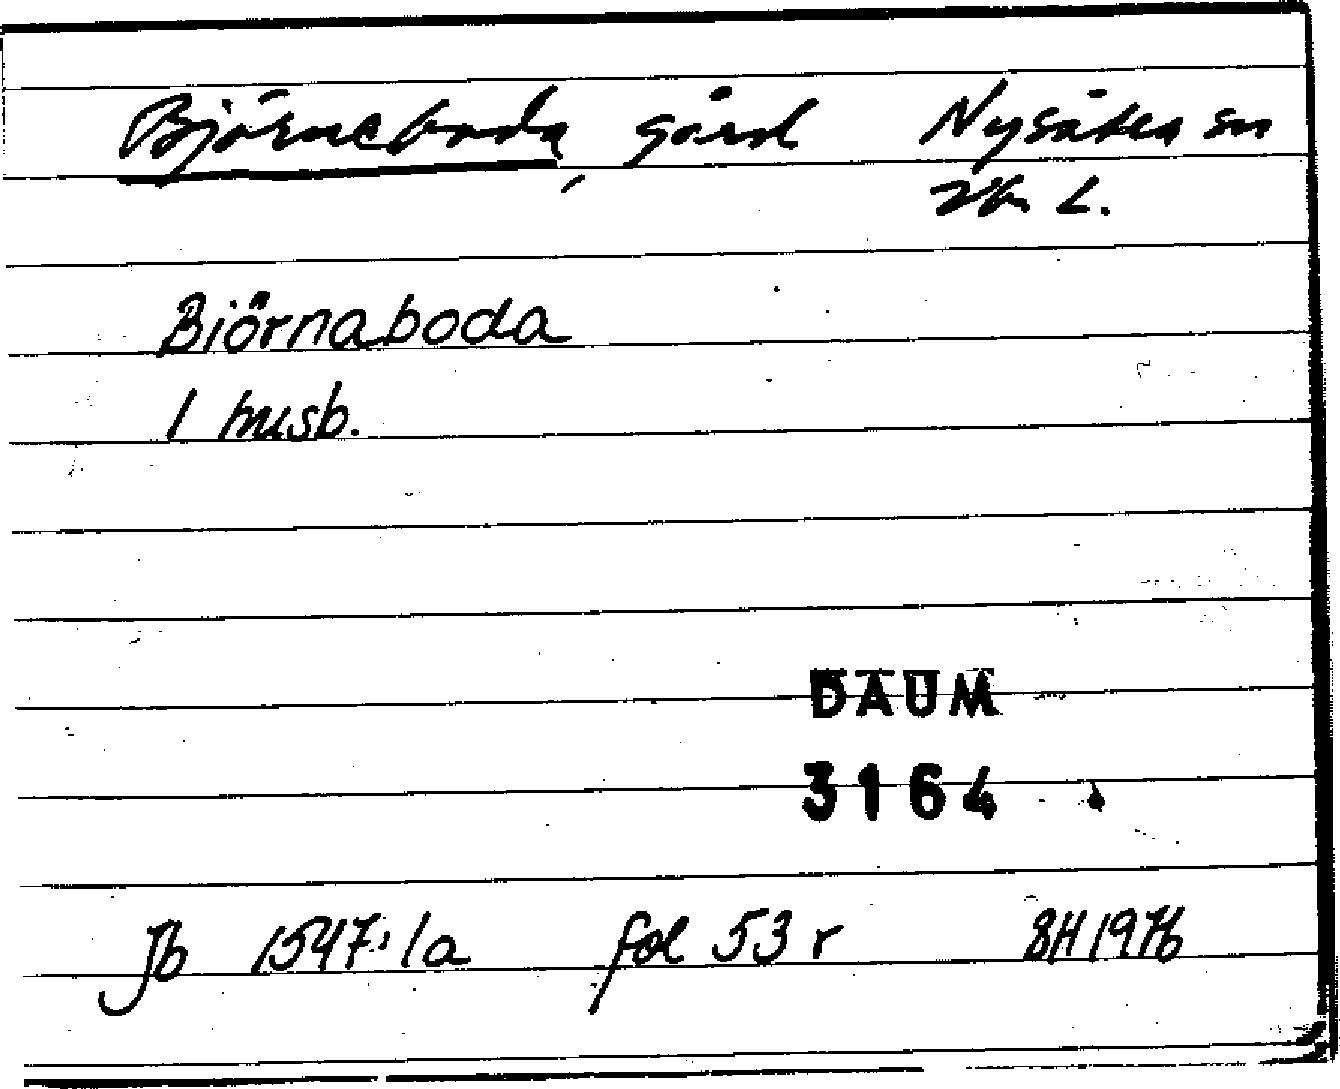 Björneboda, gård Nysätra sn
Vb. L.
Biörnaboda
1 husb.
DAUM
3164
Jb 1547:1a fol 53 r BH 1976